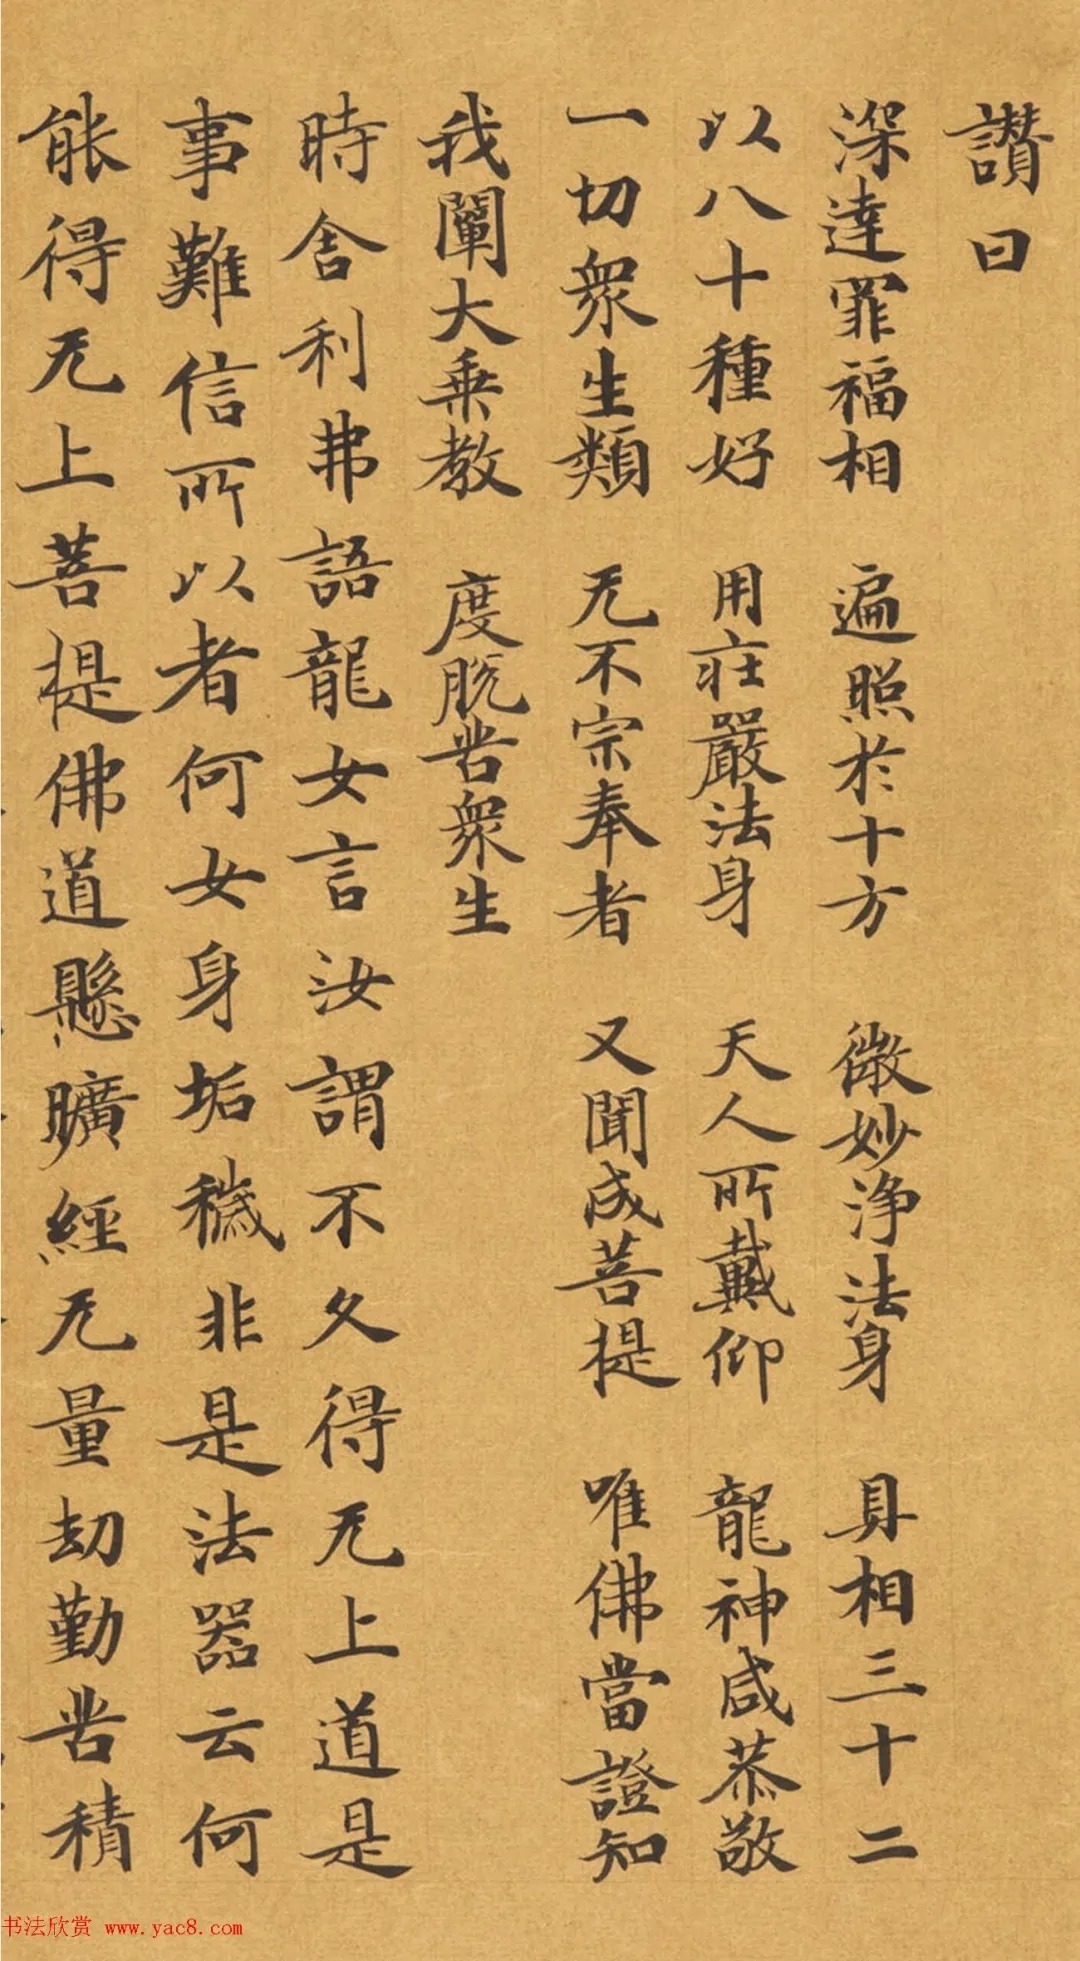 讃曰
深達罪福相　遍照於十方　微妙淨法身　具相三十二
以八十種好　用莊嚴法身　天人所戴仰　龍神咸恭敬
一切衆生類　无不宗奉者　又聞成菩提　唯佛當證知
我闡大乗教　度脱苦衆生
時舍利弗語龍女言汝謂不久得无上道是
事難信所以者何女身垢穢非是法器云何
能得无上菩提佛道懸曠經无量劫勤苦積
书法欣赏 www.yac8.com